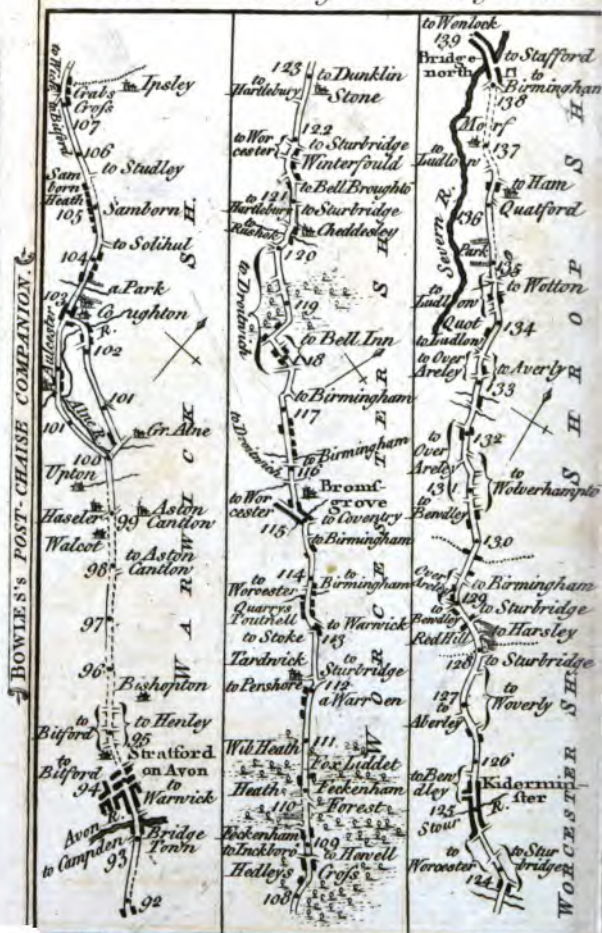 BOWLES's POST-CHAISE COMPANION.
to Wick
to Bitford
Crabs
Cross
Ipsley
107
106
to Studley
Sam
born
Heath
105
Samborn
to Solihul
104
a Park
103
Coughton
R.
Aulcester
102
101
Alne R.
101
Gr. Alne
100
Upton
Haseler
99
Aston
Cantlow
Walcot
to Aston
Cantlow
98
97
96
Bishopton
to
Bitford
to Henley
95
Stratford
on Avon
to
Bitford
94
to
Warwick
Avon R.
Bridge
Town
to Campden
93
92
WARWICK SH.
123
to Dunklin
to
Hartlebury
Stone
122
to Wor
cester
to Sturbridge
Winterfould
to Bell Broughto
121
to
Hartlebury
to Sturbridge
to
Rushok
Cheddesley
120
to Droitwich
119
to Bell Inn
118
to Birmingham
117
to Droitwich
to Birmingham
116
Bromf-
grove
to Wor
cester
115
to Coventry
to Birmingham
114
to
Worcester
to
Birmingham
Quarrys
Toutnell
to Warwick
to Stoke
113
Tardwick
to
Sturbridge
to Pershore
112
a Warren
111
Wib Heath
Fox Liddet
Heath
Feckenham
Forest
110
Feckenham
109
to Inckboro
to Howell
Hedleys
Cross
108
WORCESTER SH
to Wenlock
139
Bridge
north
to Stafford
to
Birmingham
138
Morf
137
to
Ludlow
to Ham
Quatford
Severn R.
136
Park
135
to Wotton
to
Ludlow
Quot
134
to Ludlow
to Over
Areley
to Averly
133
132
to
Over
Areley
131
to
Wolverhampto
to
Bewdley
130
Over
Areley
to Birmingham
129
to Sturbridge
to
Bewdley
Red Hill
to Harsley
128
to Sturbridge
127
to
Woverly
to
Aberley
126
to Bew
dley
Kidermin-
ster
125
Stour R.
to
Worcester
to Stur
bridge
124
SHROPSH
WORCESTER SH: